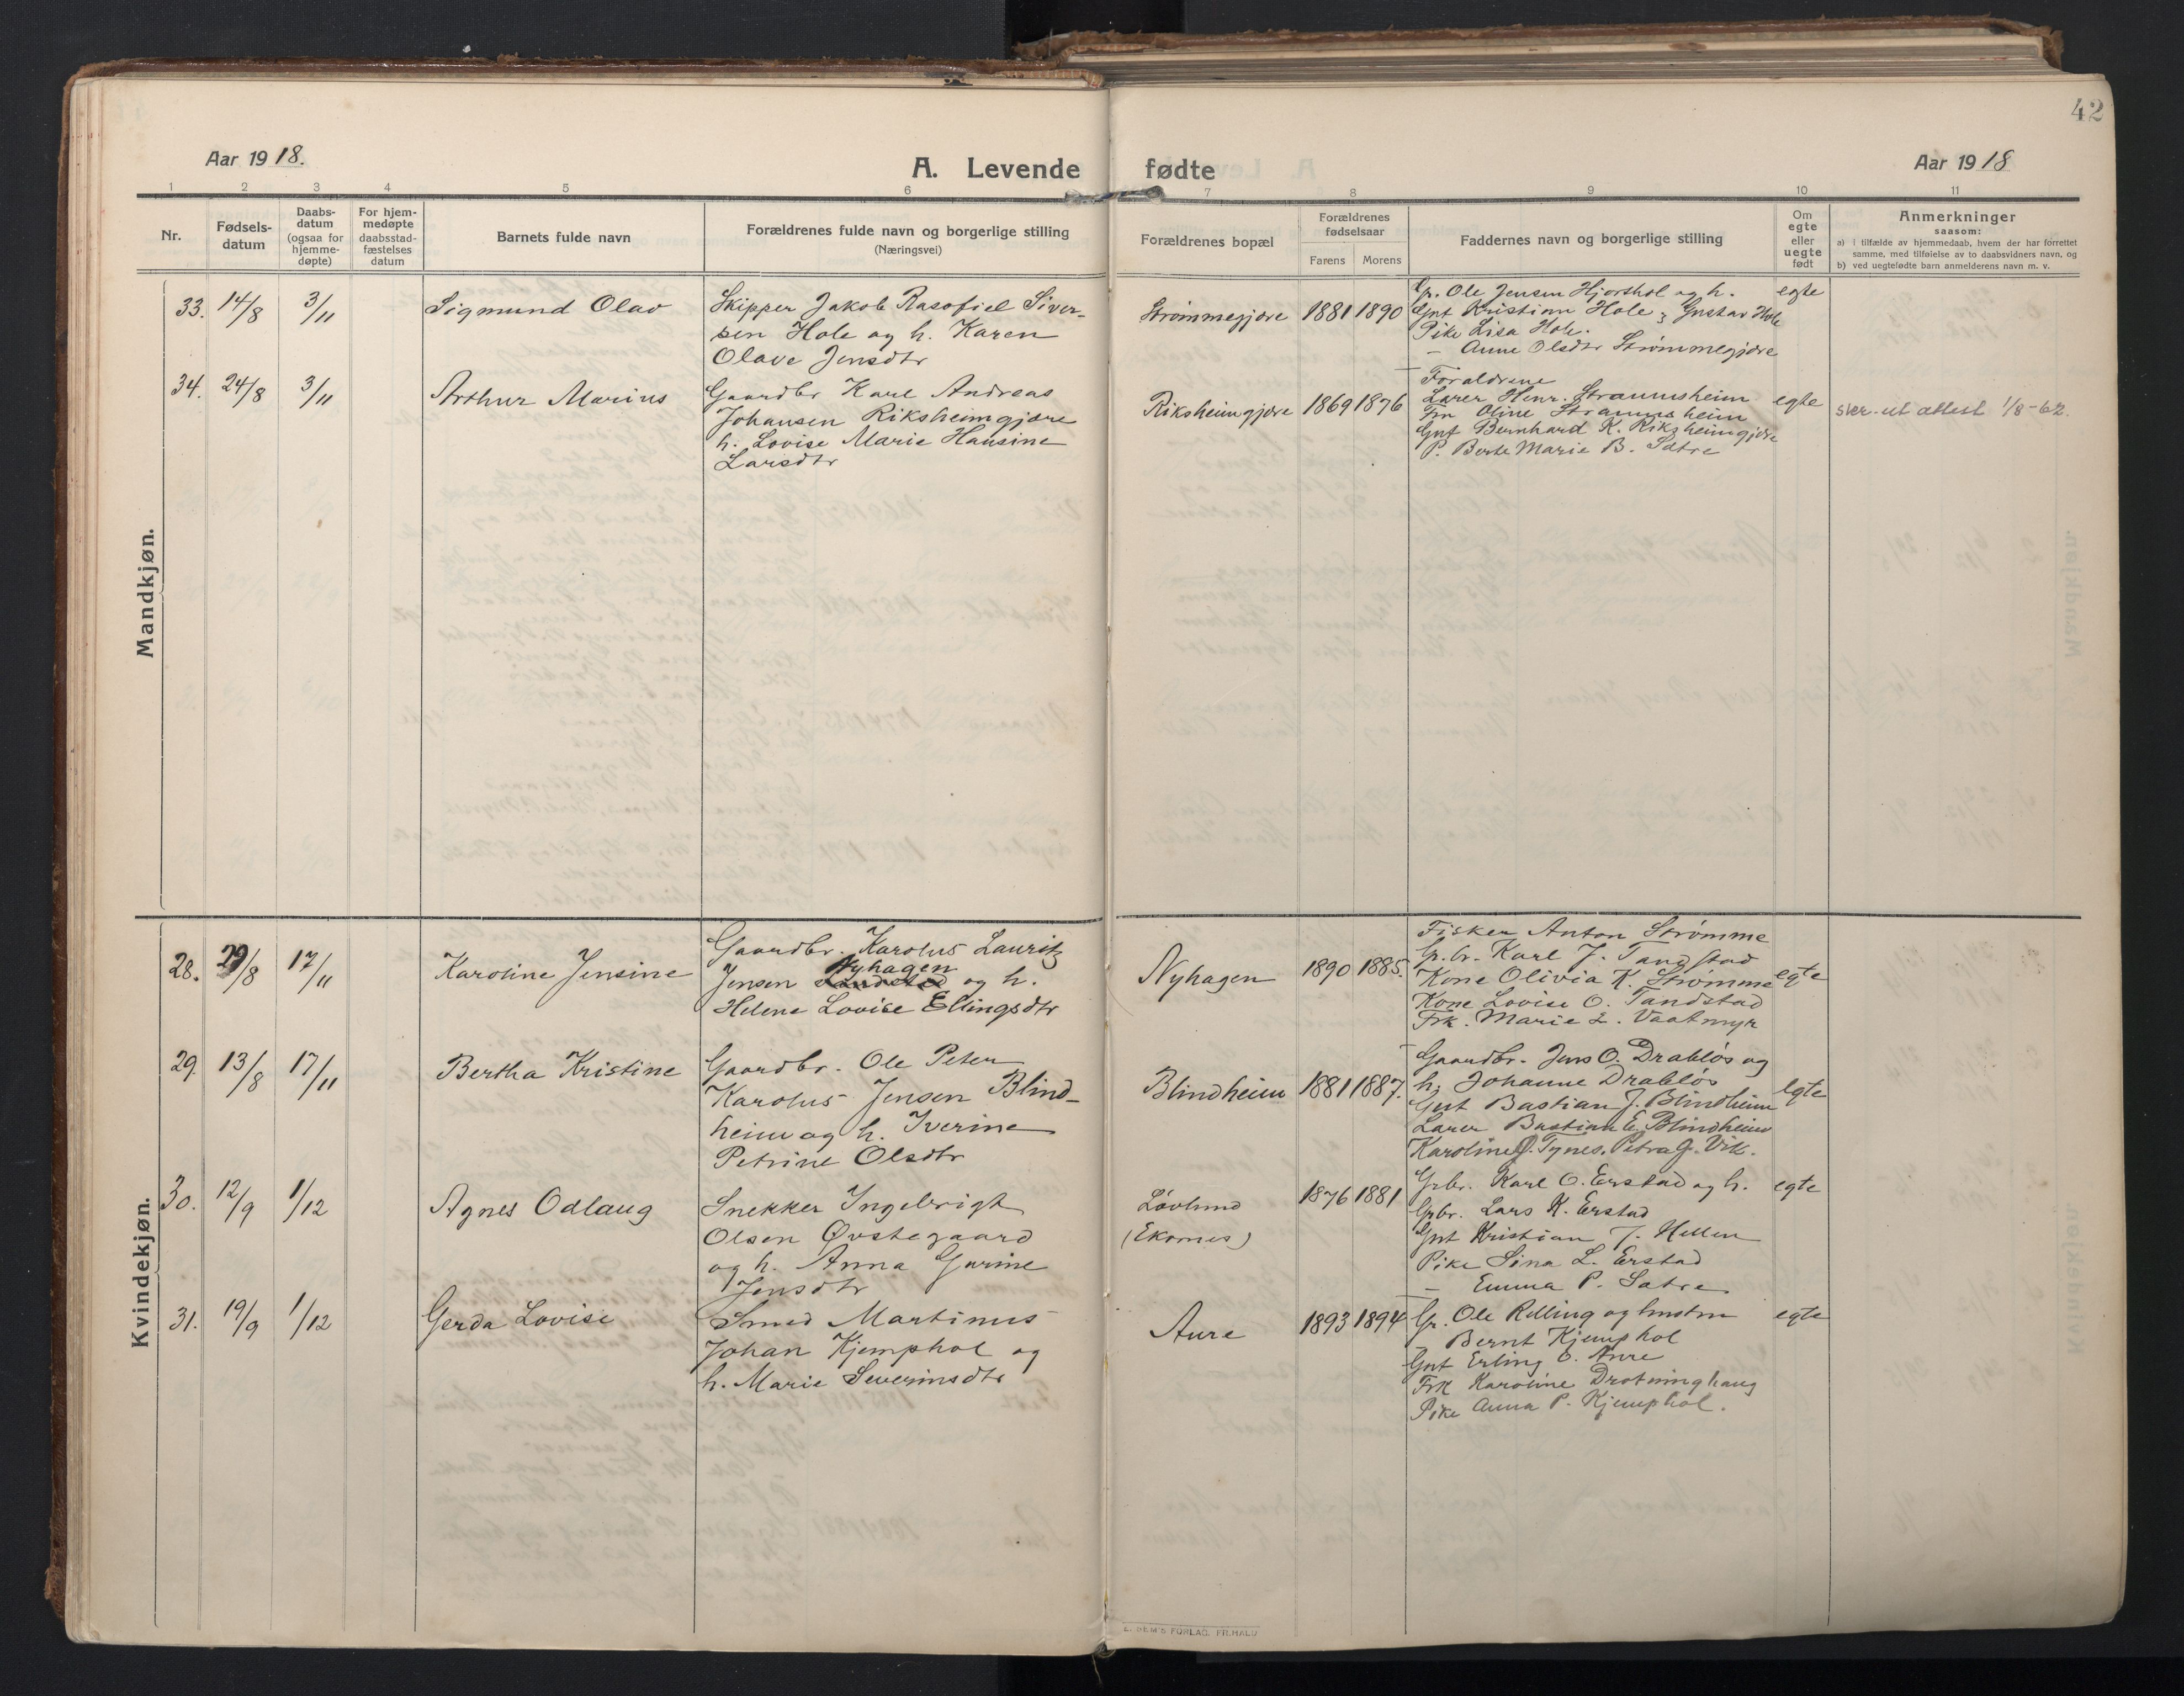 42
Aar 1918.
A. Levende fødte
Aar 1918
1 2 3 4 5 6 7 8 9 10 11
Nr.
Fødsels-
datum
Daabs-
datum
(ogsaa for
hjemme-
døpte)
For hjem-
medøpte
daabsstad-
fæstelses
datum
Barnets fulde navn
Forældrenes fulde navn og borgerlige stilling
(Næringsvei)
Forældrenes bopæl
Forældrenes
fødselsaar
Farens Morens
Faddernes navn og borgerlige stilling
Om
egte
eller
uegte
født
Anmerkninger
saasom:
a) i tilfælde av hjemmedaab, hvem der har forrettet
samme, med tilføielse av to daabsvidners navn, og
b) ved uegtefødte barn anmelderens navn m. v.
Mandkjøn.
33. 14/8 3/11
Sigmund Olav
Skipper Jakob Rasofiel Siver-
sen Hole og h. Karen
Olave Jensdtr
Strømmegjære 1881 1890
Gr. Ole Jensen Hjorthol og h.
Gut Kristian Hole, Gustav Hole
Pike Lisa Hole.
— Anne Olsdtr Strømmegjære
egte
34. 24/8 3/11
Arthur Marius
Gaardbr Karl Andreas
Johansen Riksheimgjære
h. Lovise Marie Hansine
Larsdtr
Riksheimgjære 1869 1876
Foraldrene
Lærer Henr. Straumsheim
Fru Oline Straumsheim
Gut Bernhard K. Riksheimgjære
P. Berte Marie B. Sætre
egte
skr. ut attest 1/8-62.
Kvindekjøn.
28. 29/8 17/11
Karoline Jensine
Gaardbr. Karolus Lauritz
Nyhagen
Jensen og h.
Helene Lovise Ellingsdtr
Nyhagen 1890 1885.
Fisker Anton Strømme
G.br. Karl J. Tandstad
Kone Olivia K. Strømme
Kone Lovise O. Tandstad
Frk. Marie L. Vaatmyr
egte
29. 13/8 17/11
Bertha Kristine
Gaardbr. Ole Peter
Karolus Jensen Blind-
heim og h. Iverine
Petrine Olsdtr
Blindheim 1881 1887.
Gaardbr. Jens O. Drabløs og
h. Johanne Drabløs
Gut Bastian J. Blindheim
Lærer Bastian E. Blindheim
Karoline J. Tynes. Petra J. Vik.
egte
30. 12/9 1/12
Agnes Odlaug
Snekker Ingebrigt
Olsen Øvstegaard
og h. Anna Gurine
Jensdtr
Løvlund
(Ekornes)
1876 1881
Grbr. Karl O. Erstad og h.
Grbr. Lars K. Erstad
Gut Kristian J. Hellen
Pike Sina L. Erstad
— Emma P. Sætre
egte
31. 19/9 1/12
Gerda Lovise
Smed Martinus
Johan Kjemphol og
h. Marie Severinsdtr
Aure 1893 1894
Gr. Ole Relling og hustru
Bernt Kjemphol
Gut Erling O. Aure
Frk Karoline Drotninghaug
Pike Anna P. Kjemphol.
egte